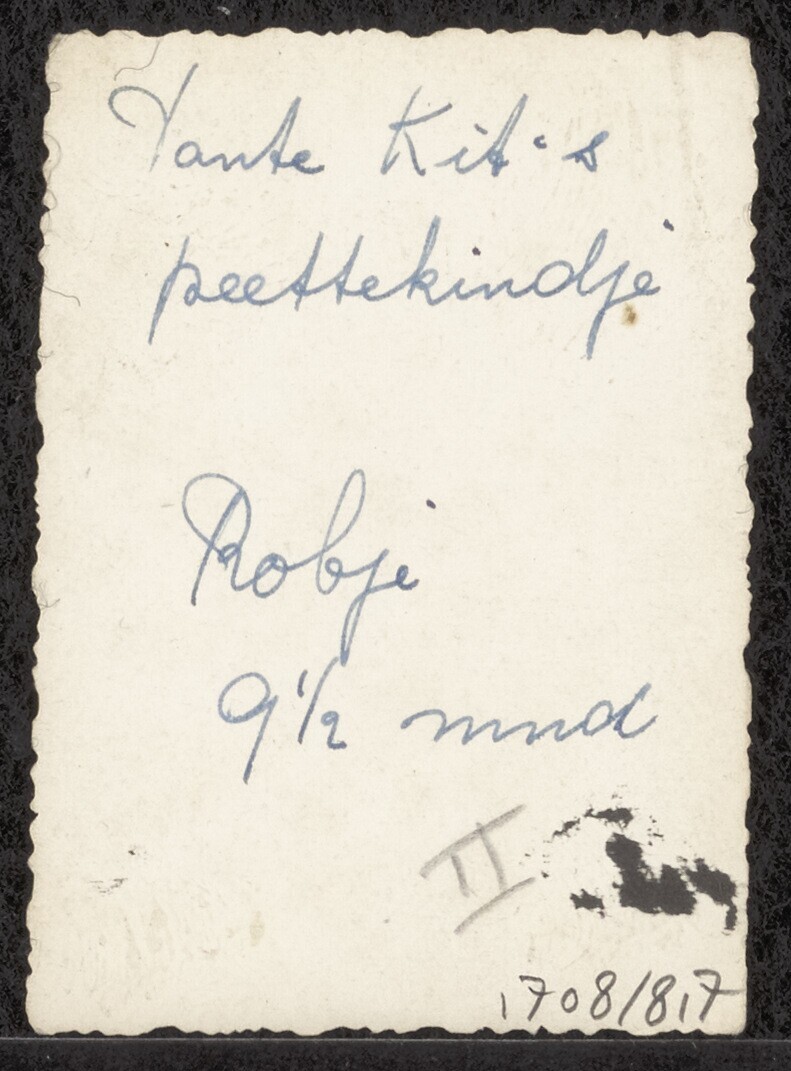 Tante Kit's
peettekindje
Robje
9 1/2 mnd
II
1708/817